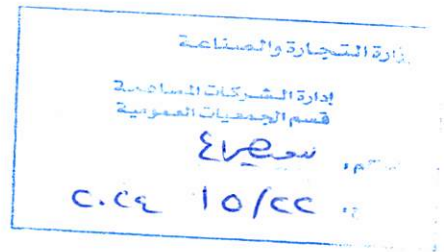 وزارة التجارة والصناعة
إدارة الشركات المساهمة
قسم الجمعيات العمومية
٢٠٢٤